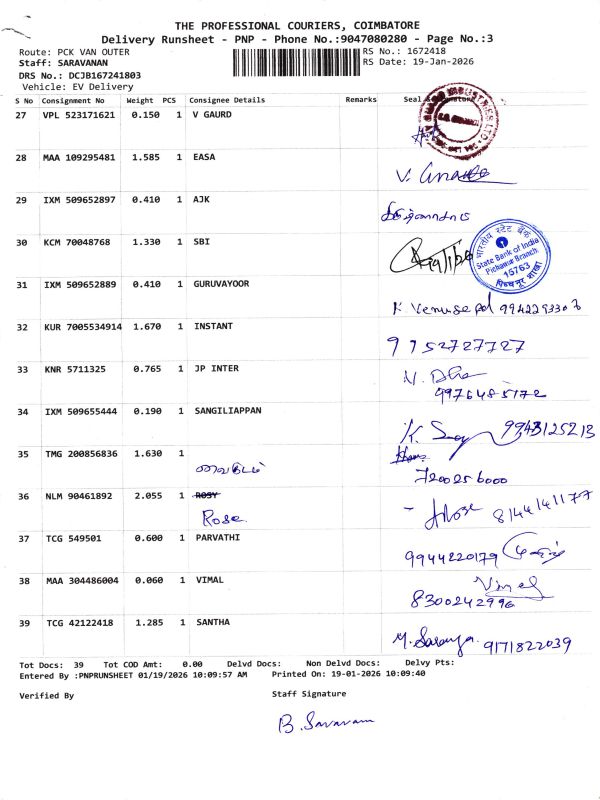 THE PROFESSIONAL COURIERS, COIMBATORE
Delivery Runsheet - PNP - Phone No.:9047080280 - Page No.:3
Route: PCK VAN OUTER RS No.: 1672418
Staff: SARAVANAN RS Date: 19-Jan-2026
DRS No.: DCJB167241803
Vehicle: EV Delivery
S No Consignment No Weight PCS Consignee Details Remarks Seal & Signature
27 VPL 523171621 0.150 1 V GAURD
28 MAA 109295481 1.585 1 EASA
V.
29 IXM 509652897 0.410 1 AJK
30 KCM 70048768 1.330 1 SBI
भारतीय स्टेट बैंक
State Bank of India
Pichanur Branch
15763
31 IXM 509652889 0.410 1 GURUVAYOOR
K. Venugopal 9942293307
32 KUR 7005534914 1.670 1 INSTANT
9952727727
33 KNR 5711325 0.765 1 JP INTER
N.
9976485172
34 IXM 509655444 0.190 1 SANGILIAPPAN
K. 9943125213
35 TMG 200856836 1.630 1
7200256000
36 NLM 90461892 2.055 1 ROSY
Rose 8144141177
37 TCG 549501 0.600 1 PARVATHI
9944220179
38 MAA 304486004 0.060 1 VIMAL
Vimal
8300242996
39 TCG 42122418 1.285 1 SANTHA
M. Saranya. 9171822039
Tot Docs: 39 Tot COD Amt: 0.00 Delvd Docs: Non Delvd Docs: Delvy Pts:
Entered By :PNPRUNSHEET 01/19/2026 10:09:57 AM Printed On: 19-01-2026 10:09:40
Verified By Staff Signature
B. Saravanan